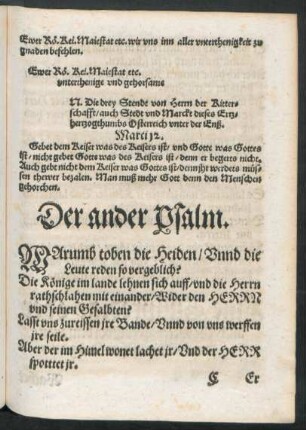 Ewer Rö. Kei. Maiestat etc. wir vns inn aller vnterthenigkeit zu
gnaden befehlen.
Ewer Rö. Kei. Maiestat etc.
vnterthenige vnd gehorsame
N. Die drey Stende von Herrn der Ritter-
schafft/ auch Stede vnd Marckt dieses Ertz-
hertzogthumbs Osterreich vnter der Enß.
Marci 12.
Gebet dem Keiser was des Keisers ist/ vnd Gotte was Gottes
ist/ nicht gebet Gotts was des Keisers ist/ denn er begerts nicht.
Auch gebt nicht dem Keiser was Gottes ist/ dennjhr werdets müs-
sen thewer bezalen. Man muß mehr Gott denn den Menschen
gehorchen.
Der ander Psalm.
WArumb toben die Heiden/ Vnnd die
Leute reden so vergeblich?
Die Könige im lande lehnen sich auff/ vnd die Herrn
rathschlahen mit einander/ Wider den HERRN
vnd seinen Gesalbten?
Lasst vns zureissen jre Bande/ Vnnd von vns werffen
jre seile.
Aber der im Himel wonet lachet jr/ Vnd der HERR
spottet jr.
C Er